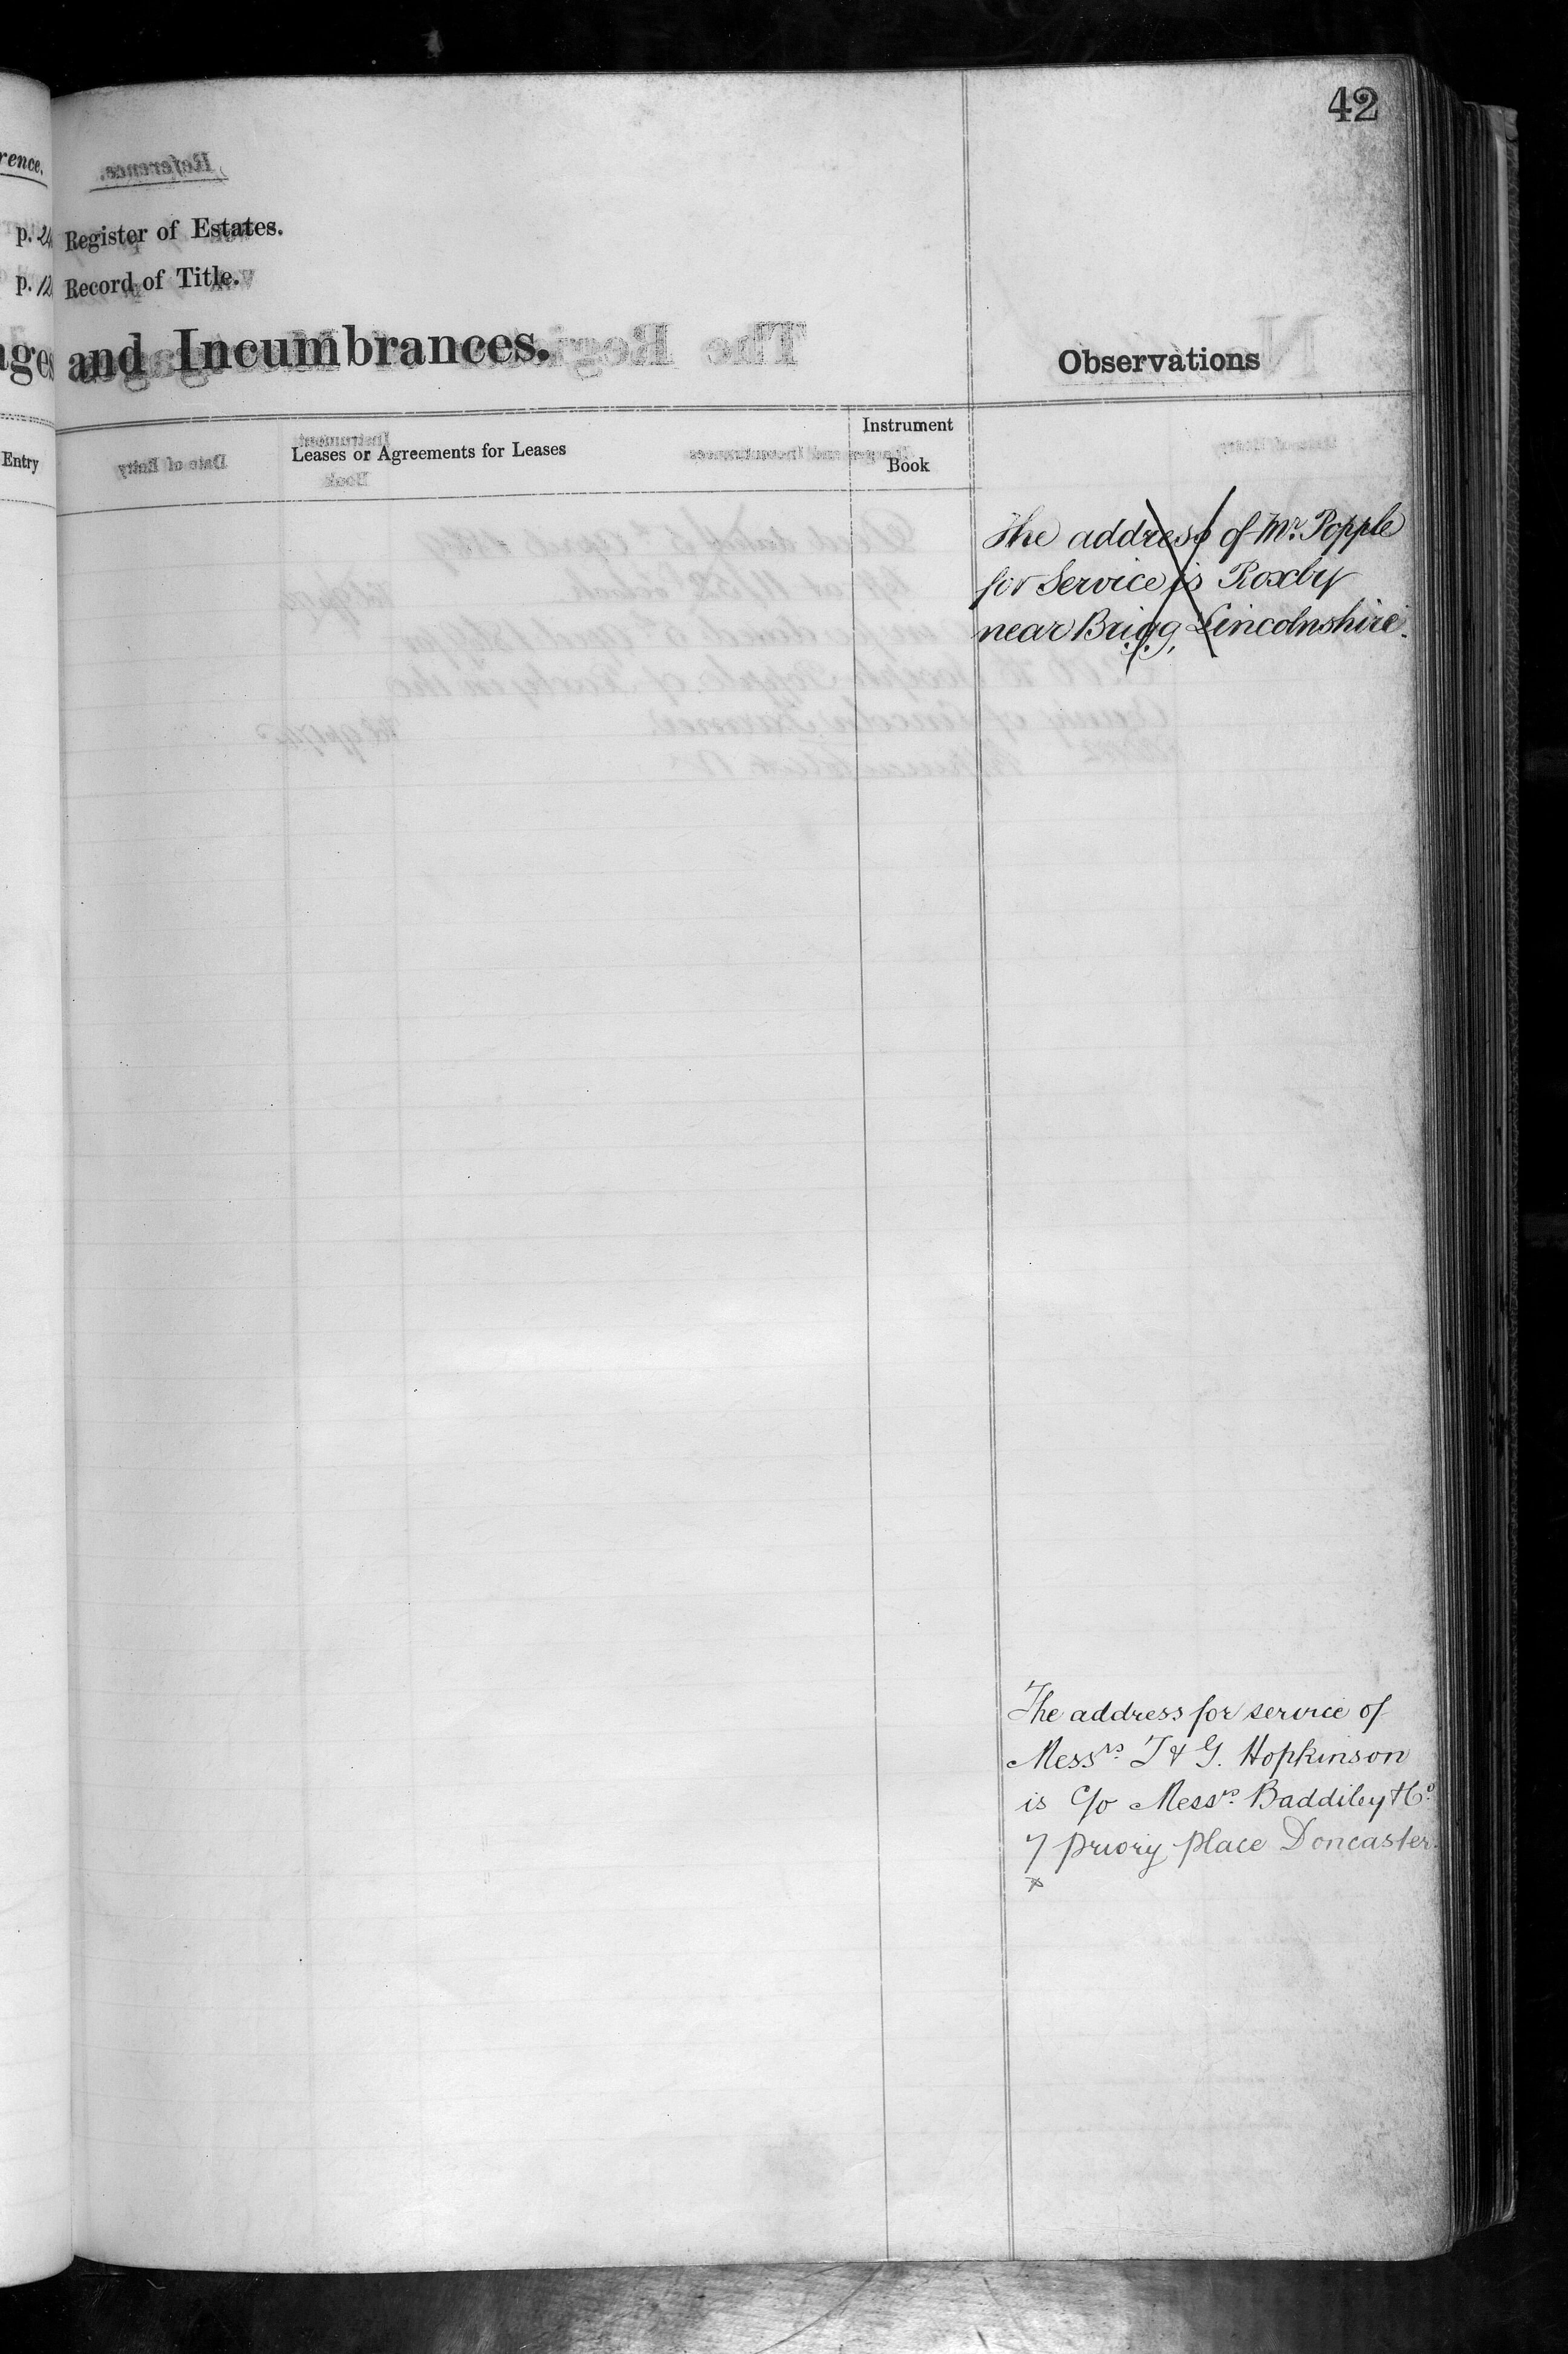 42
rence.
p. 24 Register of Estates.
p. 12 Record of Title.
ages and Incumbrances.
Observations
Entry
Leases or Agreements for Leases
Instrument
Book
The address of Mr. Popple
for Service is Roxby
near Brigg, Lincolnshire.
The address for service of
Messrs. T & G. Hopkinson
is c/o Messrs. Baddiley & Co.
7 Priory Place Doncaster.
x